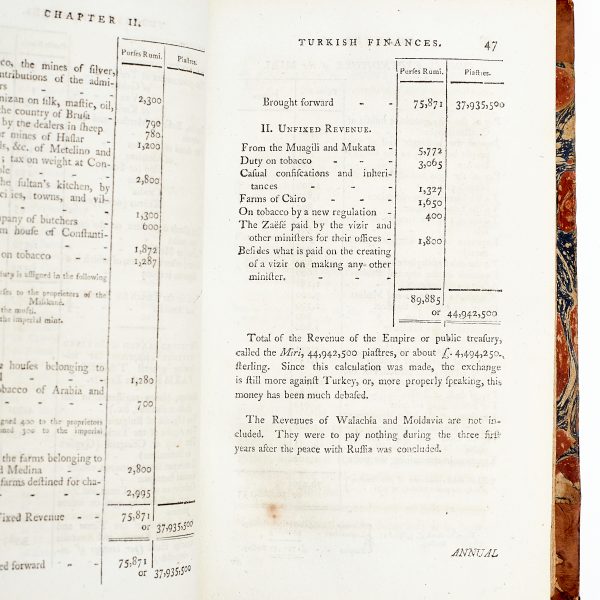 CHAPTER II.
Purses Rumi. Piastres.
co, the mines of silver,
ntributions of the admi-
rs - -
mizan on silk, mastic, oil,
the country of Brusa - 2,300
by the dealers in sheep 790
r mines of Haslar - 780
ls, &c. of Metelino and 1,200
; tax on weight at Con-
ple - - 2,800
the sultan's kitchen, by
cities, towns, and vil-
- - 1,300
mpany of butchers - 600
m house of Constanti-
- - 1,872
on tobacco - - 1,287
duty is assigned in the following
rses to the proprietors of the
Malikané.
the mufti.
the imperial mint.
houses belonging to
- - 1,280
obacco of Arabia and
- - 700
igned 400 to the proprietors
gned 300 to the imperial
the farms belonging to
d Medina - - 2,800
farms destined for cha-
- - 2,995
Fixed Revenue - - 75,871
or 37,935,500
ed forward - - 75,871
or 37,935,500
TURKISH FINANCES. 47
Purses Rumi. Piastres.
Brought forward - - 75,871 37,935,500
II. UNFIXED REVENUE.
From the Muagili and Mukata - 5,772
Duty on tobacco - - - 3,065
Casual confiscations and inheri-
tances - - - 1,327
Farms of Cairo - - - 1,650
On tobacco by a new regulation - 400
The Zaësé paid by the vizir and
other ministers for their offices - 1,800
Besides what is paid on the creating
of a vizir on making any other
minister. - - -
89,885
or 44,942,500
Total of the Revenue of the Empire or public treasury,
called the Miri, 44,942,500 piastres, or about £. 4,494,250,
sterling. Since this calculation was made, the exchange
is still more against Turkey, or, more properly speaking, this
money has been much debased.
The Revenues of Walachia and Moldavia are not in-
cluded. They were to pay nothing during the three first
years after the peace with Russia was concluded.
ANNUAL